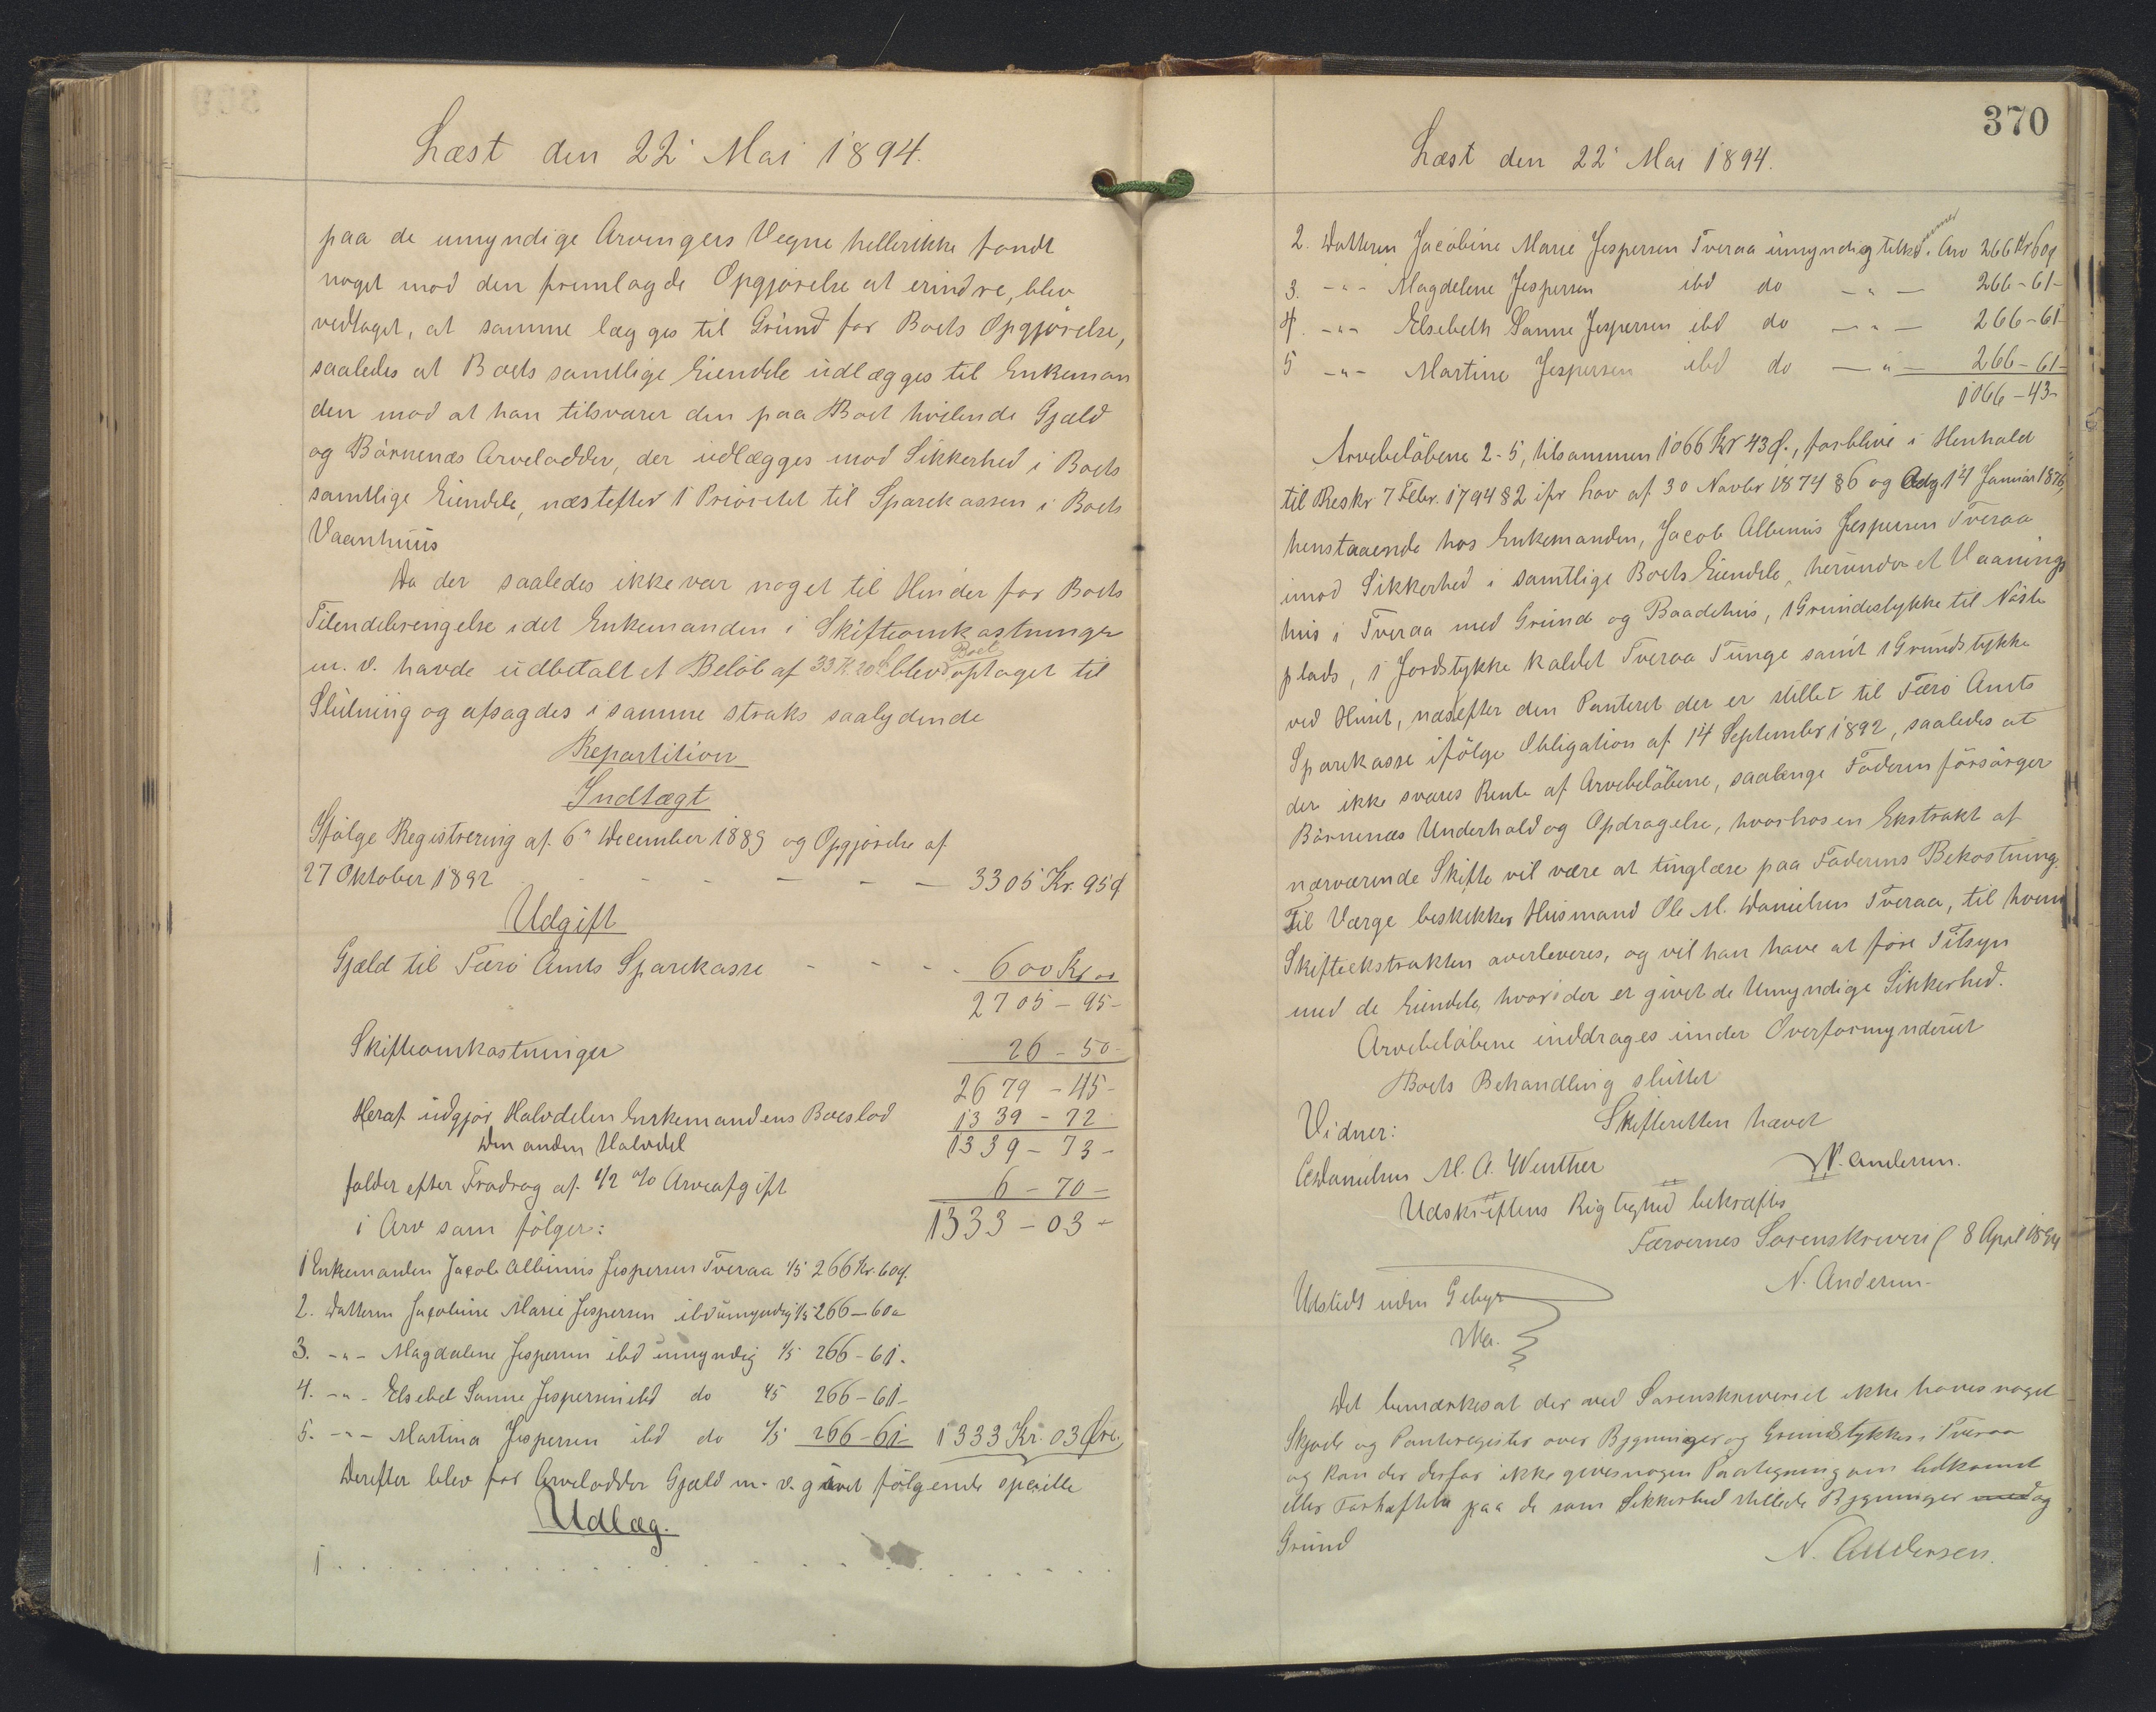 Læst den 22' Mai 1894.
paa de umyndige Arvingers Vegne hellerikke fandt
noget mod den fremlagde Opgjørelse at erindre, blev
vedtaget, at samme lægges til Grund for Boets Opgjørelse,
saaledes at Boets samtlige Eiendele udlægges til Enkeman
den mod at han tilsvarer den paa Boet hvilende Gjæld
og Børnenes Arvelodder, der udlægges mod Sikkerhed i Boets
samtlige Eiendele, næstefter 1 Prioritet til Sparekassen i Boets
Vaanhuus
Da der saaledes ikke var noget til Hinder for Boets
Tilendebringelse idet Enkemanden i Skifteomkostninger
m. v. havde udbetalt et Beløb af 33 K. 20 blev Boet optaget til
Slutning og afsagdes i samme straks saalydende
Repartition
Indtægt
Ifølge Registrering af 6' December 1889 og Opgjørelse af
27 Oktober 1892 - - - - - 3305 Kr. 95ø
Udgift
Gjæld til Færø Amts Sparekasse - - - - 600 Kr 00
2705 - 95 -
Skifteomkostninger 26 - 50 -
2679 - 45 -
Heraf udgjør Halvdelen Enkemandens Boeslod 1339 - 72
Den anden Halvdel 1339 - 73 -
falder efter Fradrag af 1/2 % Arveafgift 6 - 70 -
i Arv som følger: 1333 - 03 -
1 Enkemanden Jacob Albinus Jespersen Tveraa 1/5 266 Kr. 60ø.
2. Datteren Jacobine Marie Jespersen ibd umyndig 1/5 266 - 60 -
3. -"- Magdalene Jespersen ibd umyndig 1/5 266 - 61 -
4. -"- Elsebet Sanne Jespersen ibd do 1/5 266 - 61 -
5. -"- Martina Jespersen ibd do 1/5 266 - 61 - 1333 Kr. 03 Øre.
Derefter blev for Arvelodder Gjæld m. v. givet følgende specielle
Udlæg.
1 . . . . . . . . . . . . . .
370
Læst den 22' Mai 1894.
2. Datteren Jacobine Marie Jespersen Tveraa umyndig tilkommer Arv 266 Kr 60ø
3. -"- Magdelene Jespersen ibd do -"- 266 - 61 -
4. -"- Elsebeth Sanne Jespersen ibd do -"- 266 - 61 -
5 -"- Martine Jespersen ibd do -"- 266 - 61 -
1066 - 43 -
Arvebeløbene 2-5, tilsammen 1066 Kr 43 Ø., forblive i Henhold
til Reskr 7 Febr. 1794 § 2 ifr Lov af 30 Novbr 1874 § 6 og 14 Januar 1876,
henstaaende hos Enkemanden, Jacob Albinus Jespersen Tveraa
imod Sikkerhed i samtlige Boets Eiendele, herunder et Vaanings
hus i Tveraa med Grund og Baadehus, 1 Grundstykke til Nøste
plads, 1 Jordstykke kaldet Tveraa Tunge samt 1 Grundstykke
ved Huset, næstefter den Panteret der er stillet til Færø Amts
Sparekasse ifølge Obligation af 14 September 1892, saaledes at
der ikke svares Rente af Arvebeløbene, saalænge Faderen forsørger
Børnenes Underhold og Opdragelse, hvorhos en Ekstrakt af
nærværende Skifte vil være at tinglæse paa Faderens Bekostning.
Til Værge beskikkes Husmand Ole M. Danielsen Tveraa, til hvem
Skifteekstrakten overleveres, og vil han have at føre Tilsyn
med de Eiendele, hvori der er givet de Umyndige Sikkerhed.
Arvebeløbene inddrages under Overformynderiet
Boets Behandling sluttet
Vidner: Skifteretten hævet
Danielsen M. A. Winther N. Andersen.
Udskriftens Rigtighed bekræftes
Færøernes Sorenskriveri 8 April 1894
N. Andersen -
Udstedt uden Gebyr
NA.
Det bemærkes at der ved Sorenskriveriet ikke haves noget
Skjøde og Panteregister over Bygninger og Grundstykker i Tveraa
og kan der derfor ikke gives nogen Paategning om Adkomst
eller Forhæftelse paa de som Sikkerhed stillede Bygninger med og
Grund
N. Andersen.